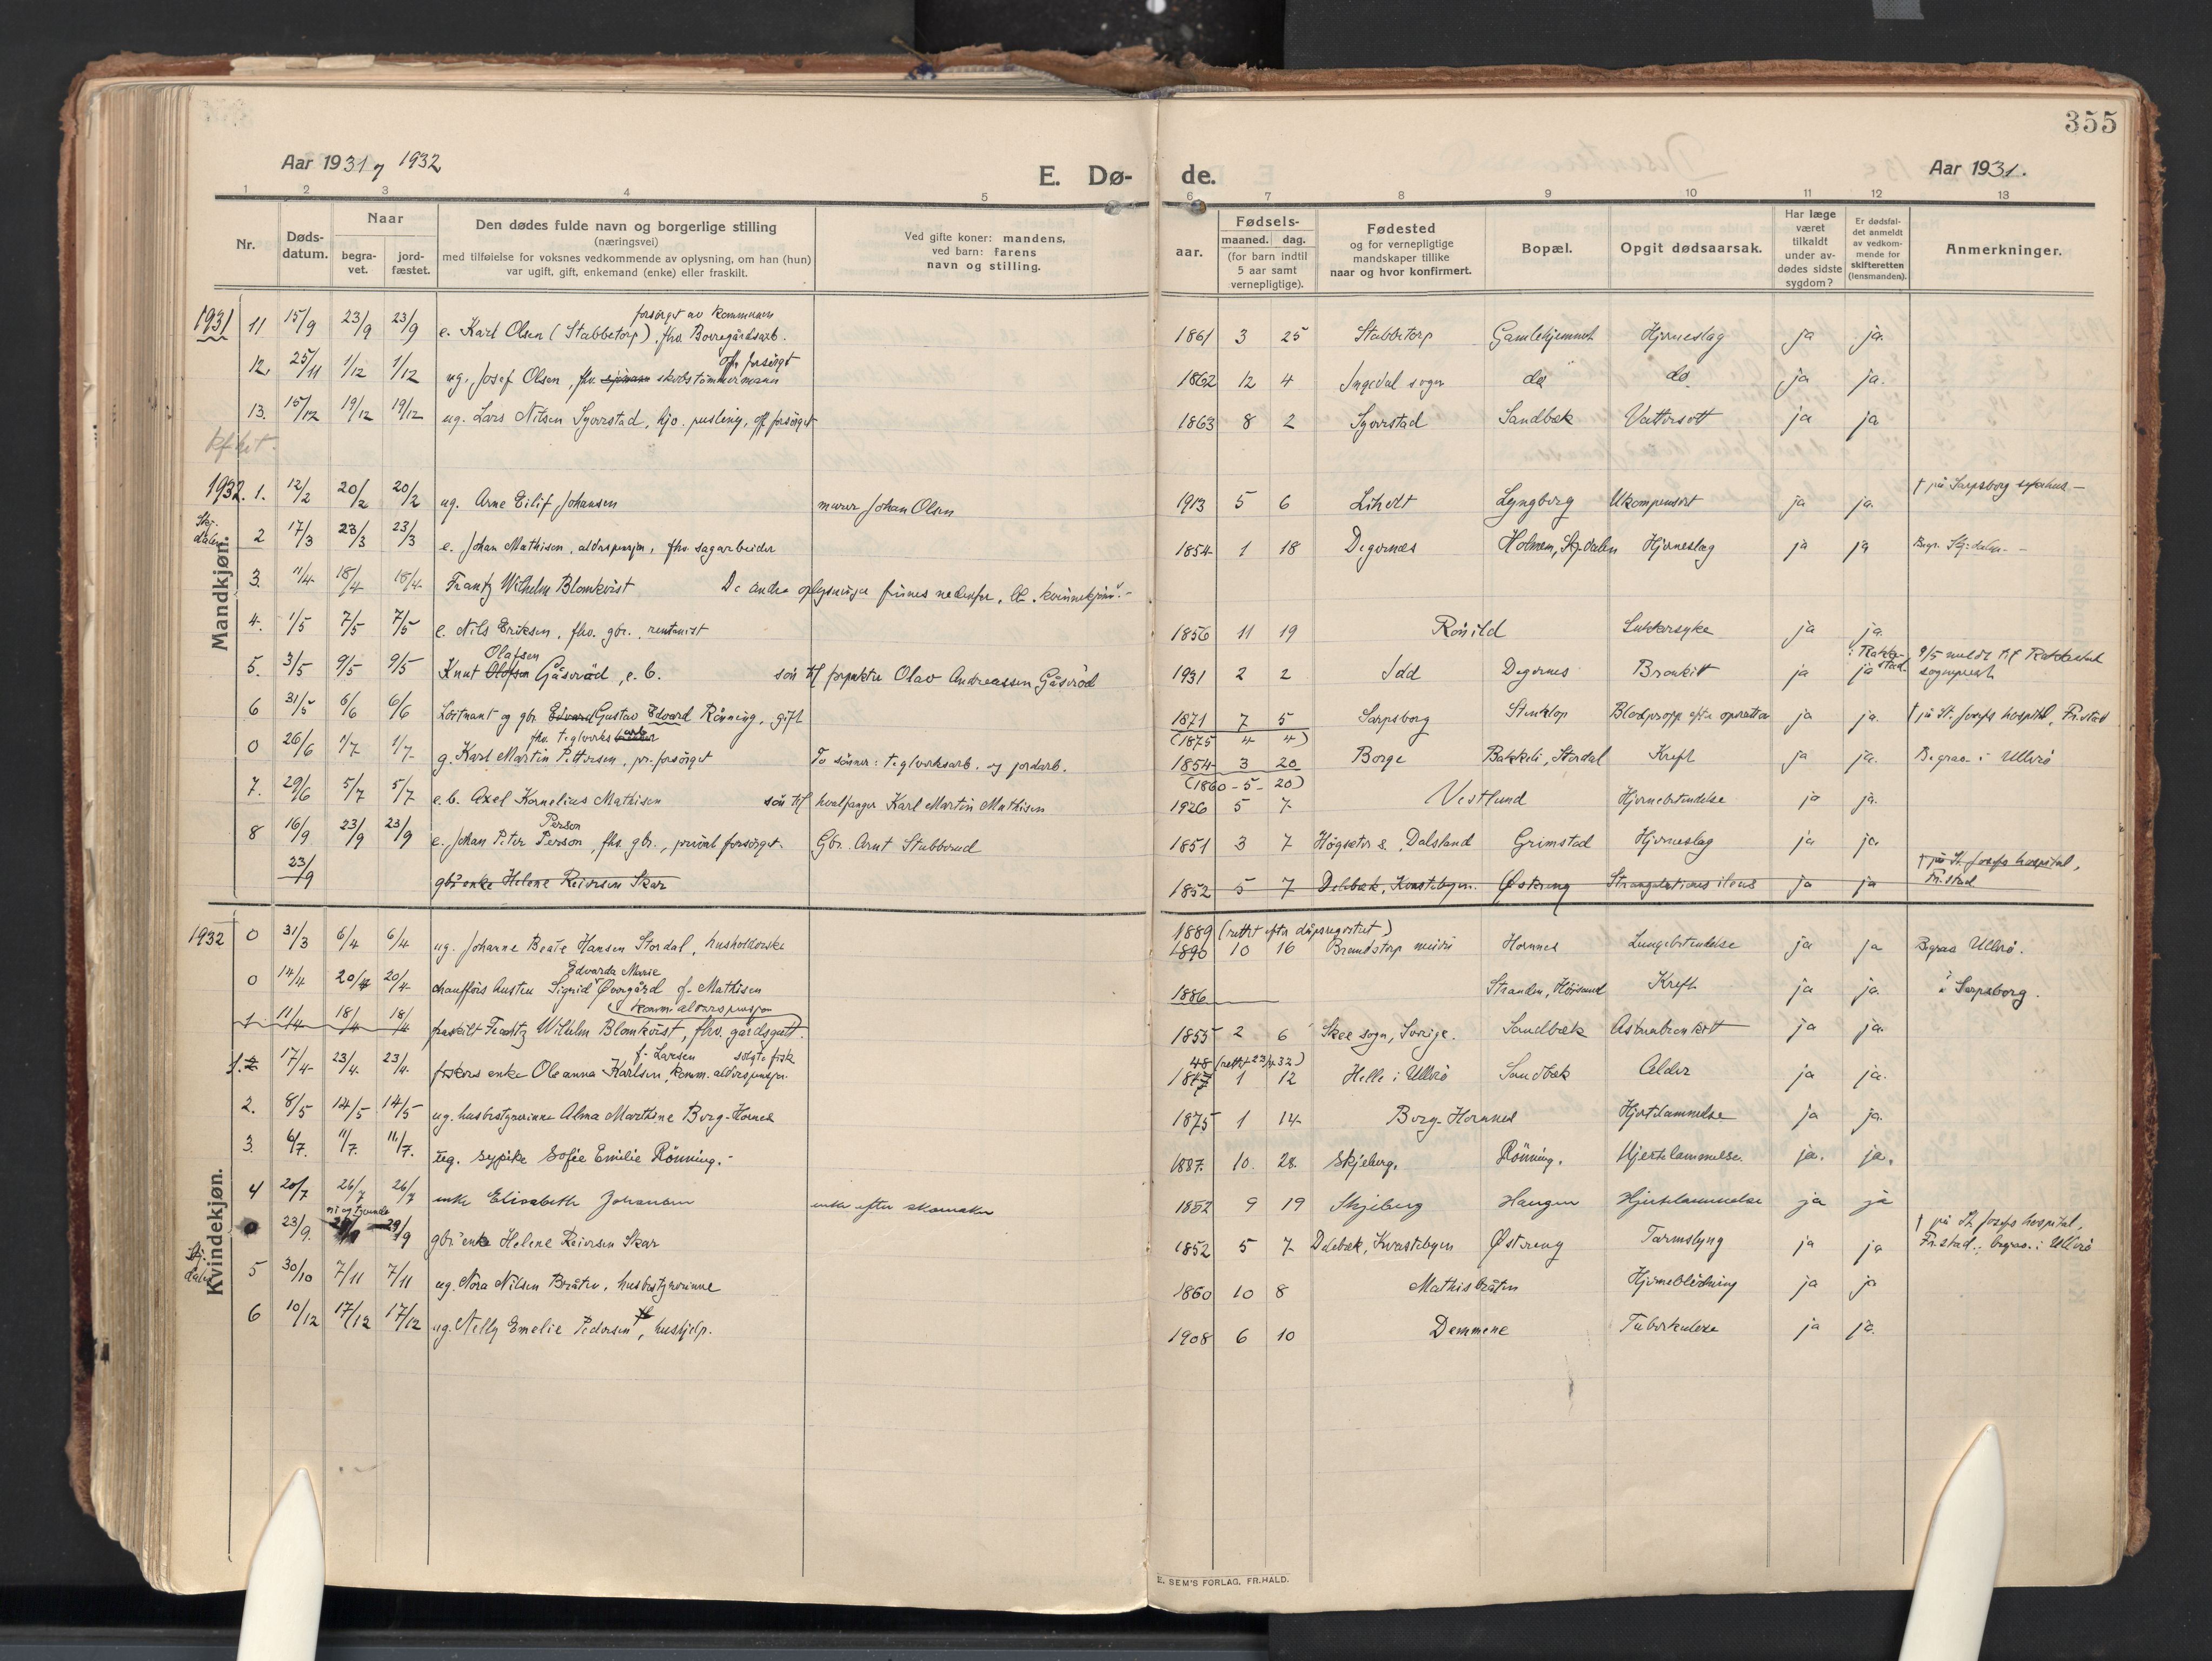 355
Aar 1931 og 1932
E. Dø-
de.
Aar 1931.
1 2 3 4 5 6 7 8 9 10 11 12 13
Nr.
Døds-
datum.
Naar
begra-
vet.
jord-
fæstet.
Den dødes fulde navn og borgerlige stilling
(næringsvei)
med tilføielse for voksnes vedkommende av oplysning, om han (hun)
var ugift, gift, enkemand (enke) eller fraskilt.
Ved gifte koner: mandens,
ved barn: farens
navn og stilling.
Fødsels-
aar.
maaned. dag.
(for barn indtil
5 aar samt
vernepligtige).
Fødested
og for vernepligtige
mandskaper tillike
naar og hvor konfirmert.
Bopæl.
Opgit dødsaarsak.
Har læge
været
tilkaldt
under av-
dødes sidste
sygdom?
Er dødsfal-
det anmeldt
av vedkom-
mende for
skifteretten
(lensmanden).
Anmerkninger.
Mandkjøn.
forsørget av kommunen
1931 11 15/9 23/9 23/9 e. Karl Olsen (Stabbetorp), fhv. Borregårdsarb. 1861 3 25 Stabbetorp Gamlehjemmet Hjerneslag ja ja.
off. forsørgt
12. 25/11 1/12 1/12 ug. Josef Olsen, fhv. sjømann skibstømmermann 1862 12 4 Ingedal sogn do do ja ja.
13. 15/12 19/12 19/12 ug. Lars Nilsen Syverstad, hjv. pusling, off forsørget 1863 8 2 Syverstad Sandbæk Vattersott ja ja
1932. 1. 12/2 20/2 20/2 ug. Arne Eilif Johansen murer Johan Olsen 1913 5 6 Lihedt Lyngberg Ukompensert ja ja. † på Sarpsborg sykehus -
Skj.
dalen 2 17/3 23/3 23/3 e. Johan Mathisen, alderspensjon, fhv. sagarbeider 1854 1 18 Degernes Holmen, Skj.dalen Hjerneslag ja ja Begr. Skj:dalen -
3. 11/4 18/4 18/4 Frantz Wilhelm Blomkvist De andre oplysninger finnes nedenfor, "kvinnekjønn". -
4. 1/5 7/5 7/5 e. Nils Eriksen, fhv. gbr., rentenist 1856 11 19 Rönild Sukkersyke ja ja.
Olafsen
5. 3/5 9/5 9/5 Knut Olafsen Gåseröd, e.b. sön til Olav Andreassen Gåseröd 1931 2 2 Idd Degernes Bronkitt ja ja i Rakkestad 9/5 meldt til Rakkestad
sogneprest
6 31/5 6/6 6/6 Löitnant og gbr. Edvard Gustav Edvard Rönning, gift 1871 7 5 Sarpsborg Stenklop Blodpropp efter operation ja ja. † på St. Josefs hospital, Fr.stad
(1875 4 4)
fhv. teglverksarb
0 26/6 1/7 1/7 g. Karl Martin Pettersen, pr. forsørget To sönner: teglverksarb. og jordarb. 1854 3 20 Borge Bakkeli, Stordal Kreft ja ja. Begrav. i Ullerö
(1860 - 5 - 20)
7. 29/6 5/7 5/7 e.b. Axel Kornelius Mathisen sön til hvalfanger Karl Martin Mathisen 1926 5 7 Vestlund Hjernebetendelse ja ja.
Person
8 16/9 23/9 23/9 e. Johan Peter Person, fhv. gbr., privat forsørget. Gbr. Arnt Stubberud 1851 3 7 Högseter s., Dalsland Grimstad Hjerneslag ja ja
23/9 gbr enke Helene Reiersen Skar 1852 5 7 Delebæk, Kvastebyen. Østreng Strangulations ileus ja ja † på St. Josefs hospital,
Fr.stad
Kvindekjøn.
1889 (rettet efter dåpsregistret)
1932 0 31/3 6/4 6/4 ug. Johanne Beate Hansen Stordal, husholderske 1890 10 16 Brandstorp Hornnes Lungebetendelse ja ja Begrav Ullerö.
Edvarda Marie
0 14/4 20/4 20/4 chaufførs hustru Sigrid Overgård f. Mathisen 1886 Stranden, Höisand Kreft ja ja. i Sarpsborg.
komm: alderspensjon
1 11/4 18/4 18/4 fraskilt Frantz Wilhelm Blomkvist, fhv. gårdsgutt. 1855 2 6 Skee sogn, Sverige. Sandbæk Astmabronkitt ja ja.
f. Larsen solgte fisk 48 (rettet 23/4 32)
1. 2 17/4 23/4 23/4 fiskers enke Oleanna Karlsen, komm. alderspensjon. 1847 1 12 Helle i Ullerö Sandbæk Alder ja ja.
2. 8/5 14/5 14/5 ug. husbestyrerinne Alma Marthine Berg-Hornes 1875 1 14 Berg-Hornnes Hjertelammelse ja ja.
3. 6/7. 11/7. 11/7. ug. sypike Sofie Emilie Rönning.- 1887. 10. 28. Skjeberg. Rönning. Hjertelammelse. ja. ja.
4 20/7 26/7 26/7 enke Elisabeth Johansen enke efter skomaker 1852 9 19 Skjeberg Haugen Hjertelammelse ja ja
ni og tyvende
23/9. 29/9 29/9 gbr enke Helene Reiersen Skar 1852 5 7 Delebæk, Kvastebyen Østreng Tarmslyng ja ja † på St. Josefs hospital,
Fr.stad., begrav. i Ullerö
Skj.
dalen 5 30/10 7/11 7/11 ug. Nora Nilsen Bråten, husbestyrerinne 1860 10 8 Mathisbråten Hjerneblödning ja ja
6 10/12 17/12 17/12 ug. Nelly Emelie Pedersen, hushjelp. 1908 6 10 Demmene Tuberkulose ja ja.
E. SEM'S FORLAG, FR.HALD.